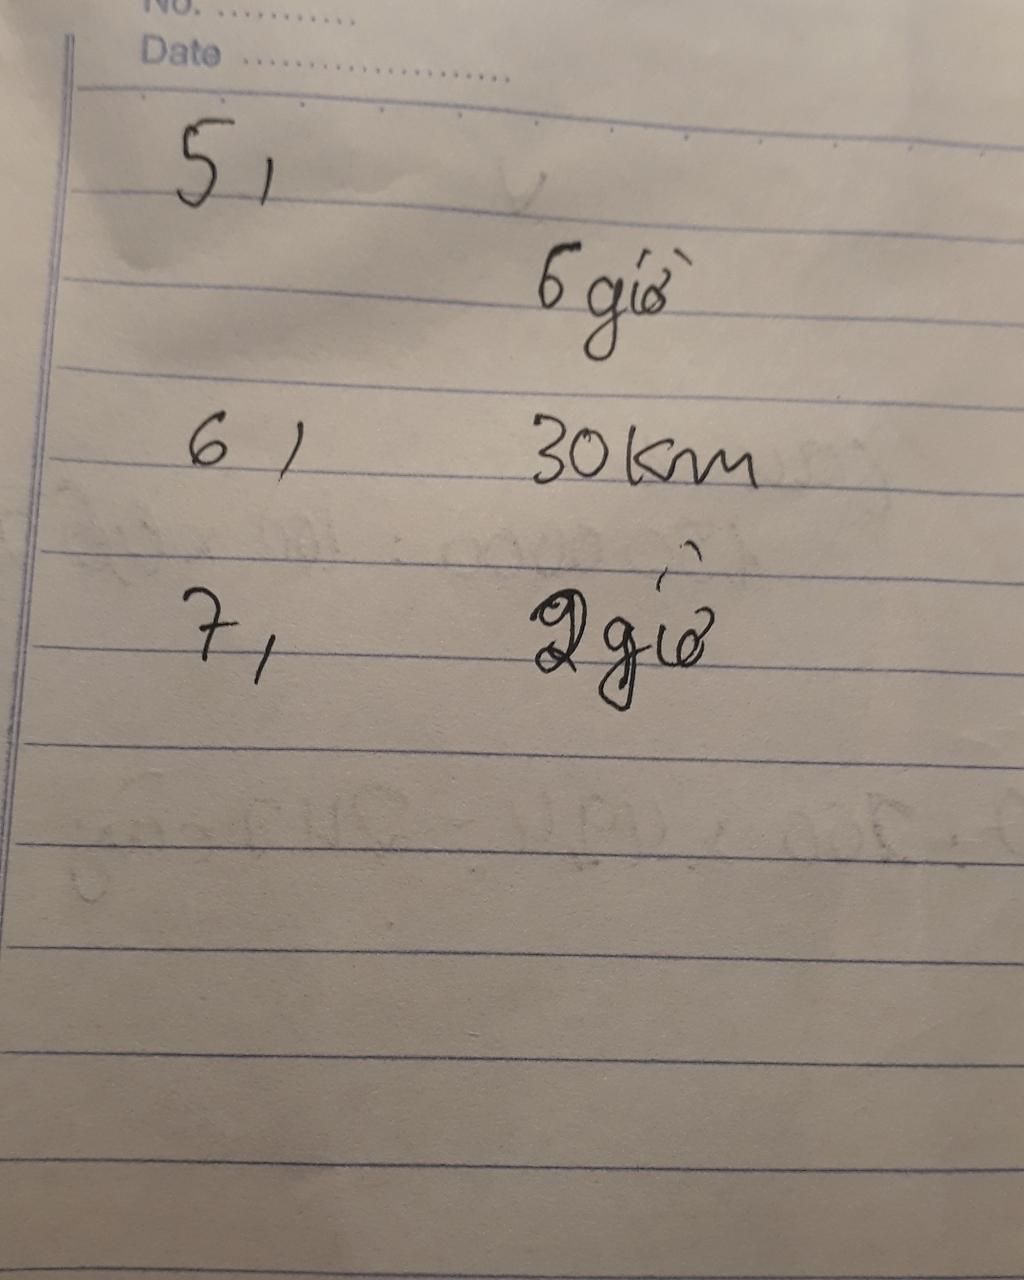 No. ...........
Date ....................
5,
6 giờ
6, 30km
7, 2 giờ